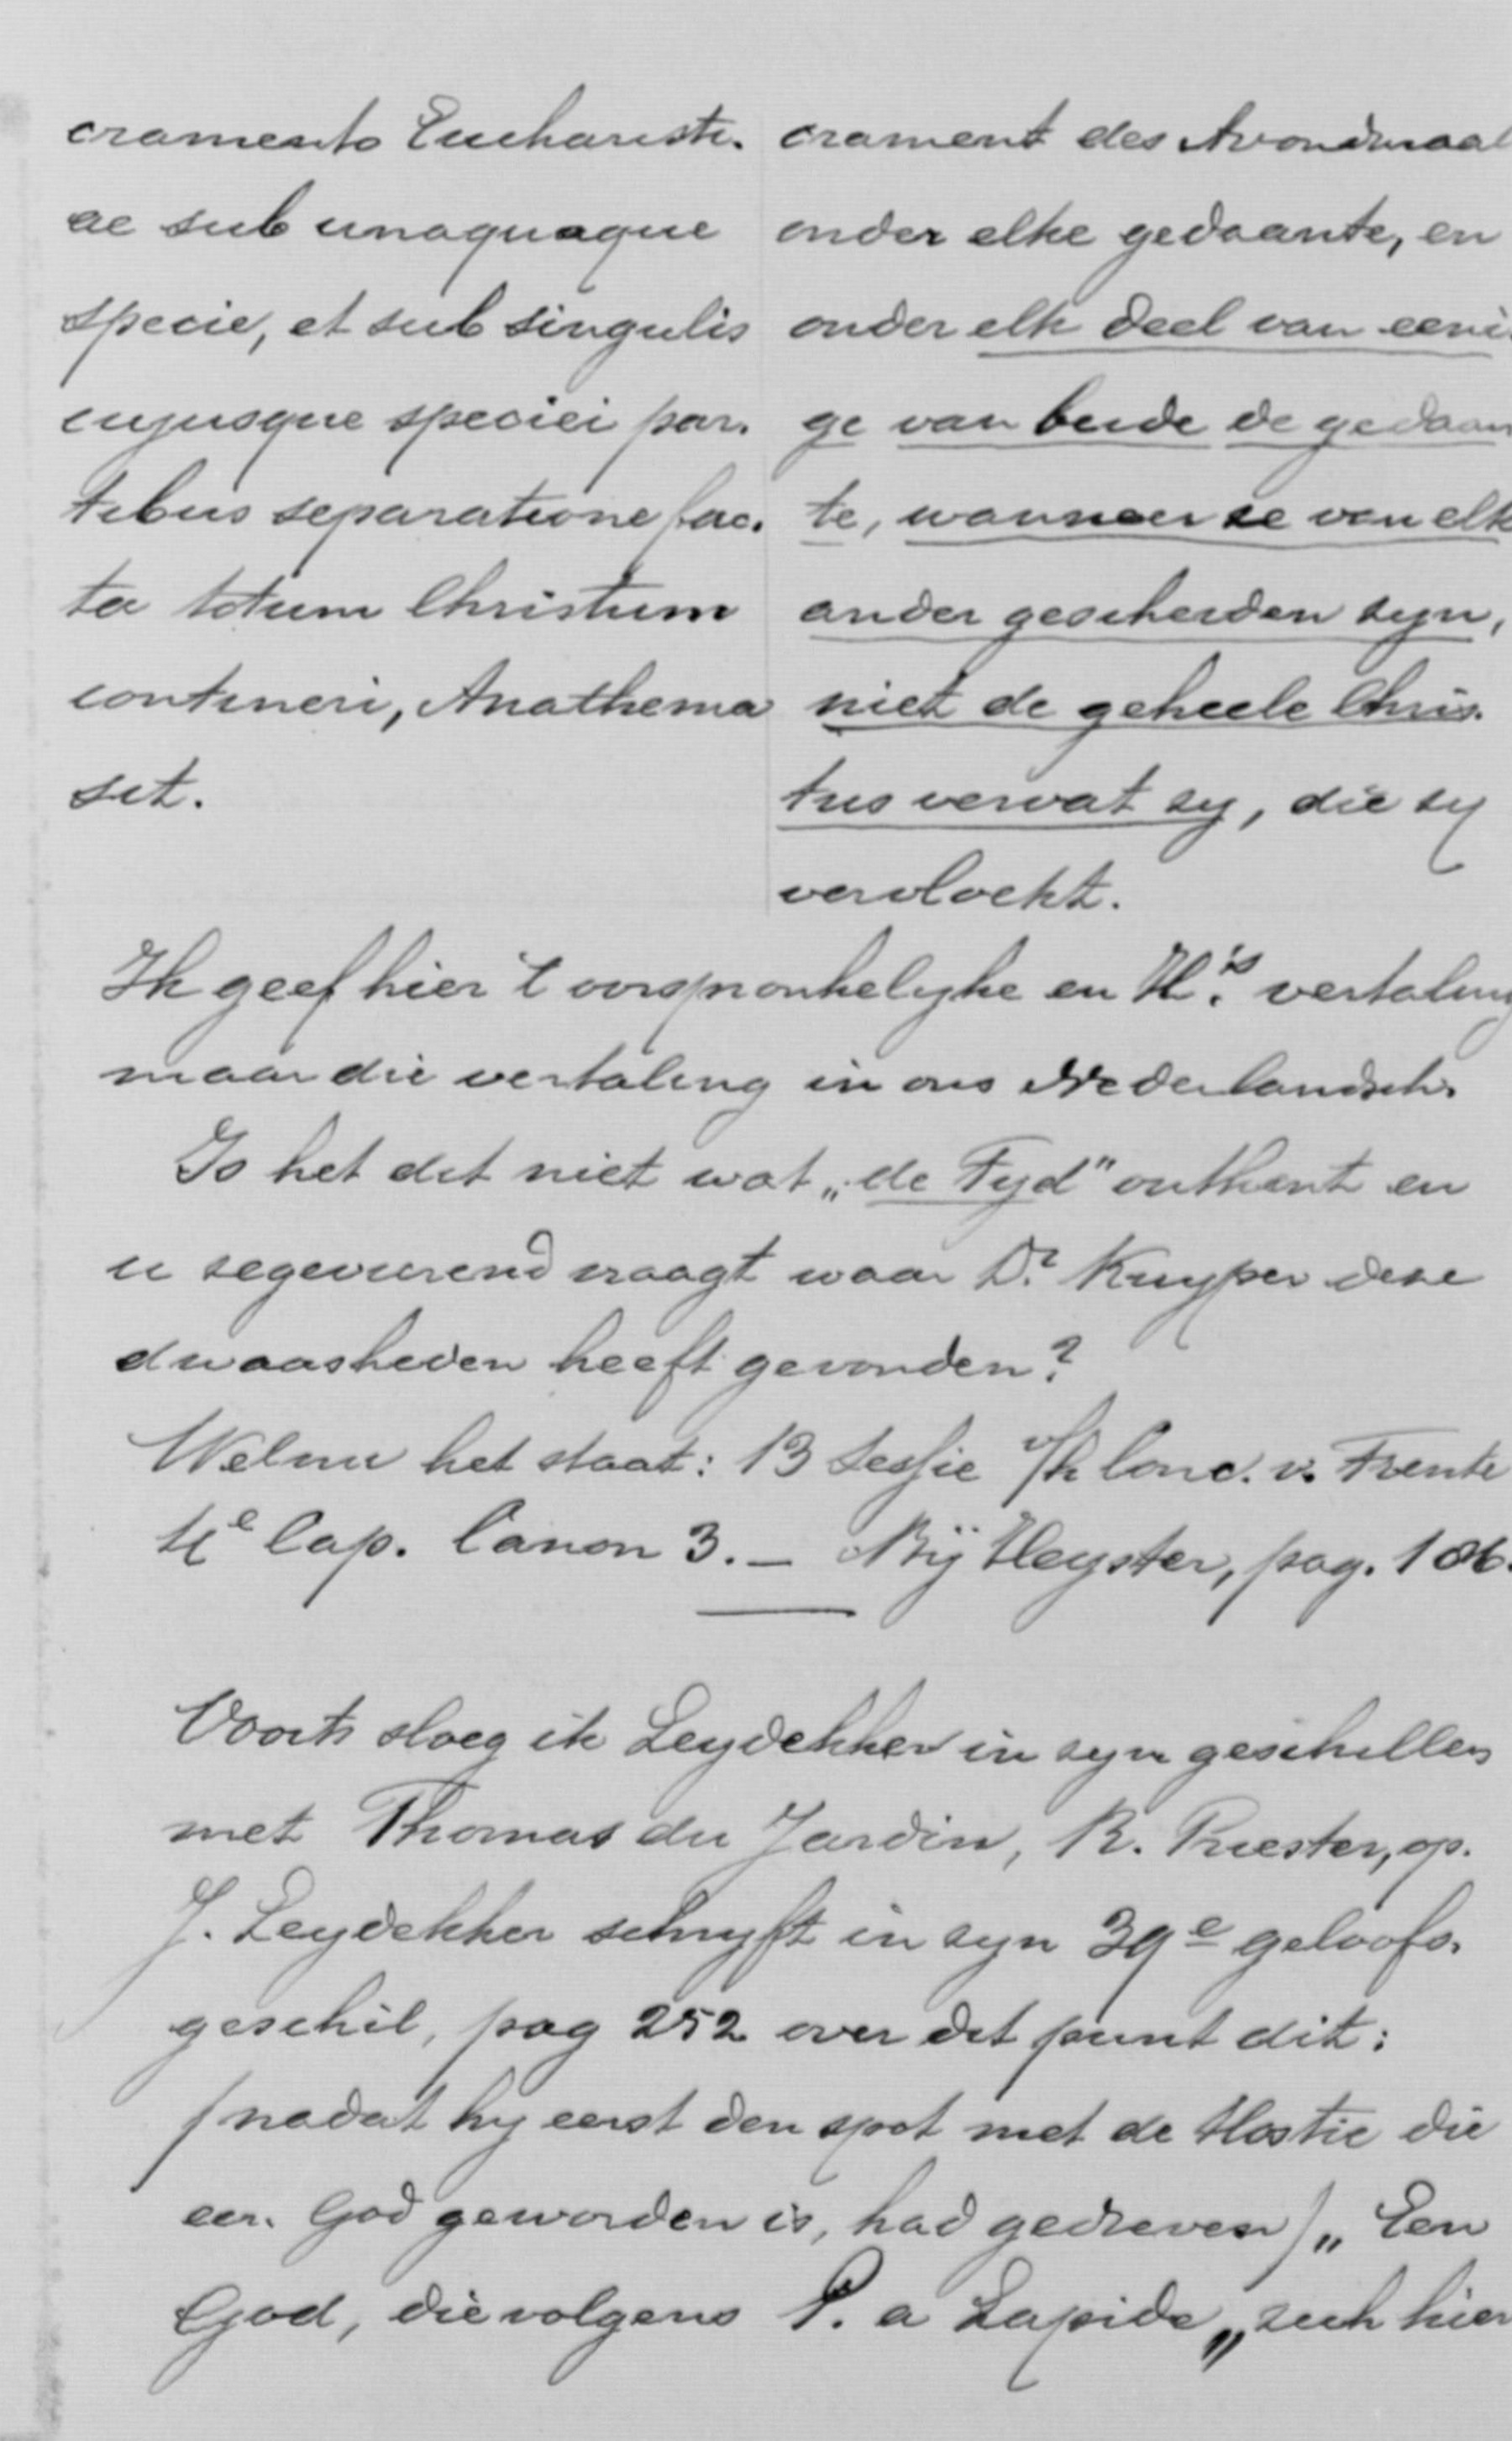 cramento Euchareste.
ae sub unaquaque
specie, et sub singulis
cujusque speciei par.
tibus separatione fac.
ta totum Christum
contineri, Anathema
sit.
crament des Avondmaal
onder elke gedaante, en
onder elk deel van eeni.
ge van beide de gedaan
te, wanneer se van elk
ander gescheiden syn,
niet de geheele Chris.
tus vervat sy, die sy
vervloekt.
Ik geef hier 't oorspronkelyke en H.'s vertaling
maar die vertaling in ons Nederlandsch.
Is het dit niet wat „de Tyd" ontkent en
u segevierend vraagt waar Dr. Kuyper dese
dwaasheden heeft gevonden?
Welnu het staat: 13 Sessie v/h Conc. v. Trente
11e Cap. Canon 3. — Bÿ Heyster, pag. 106.
Voorts sloeg ik Leydekker in syn geschillen
met Thomas du Jardin, R. Priester, op.
J. Leydekker schryft in syn 39e geloofs.
geschil, pag 252 over dit punt dit:
(nadat hy eerst den spot met de Hostie die
een God geworden is, had gedreven) „Een
God, die volgens P. a Lapide „sich hier